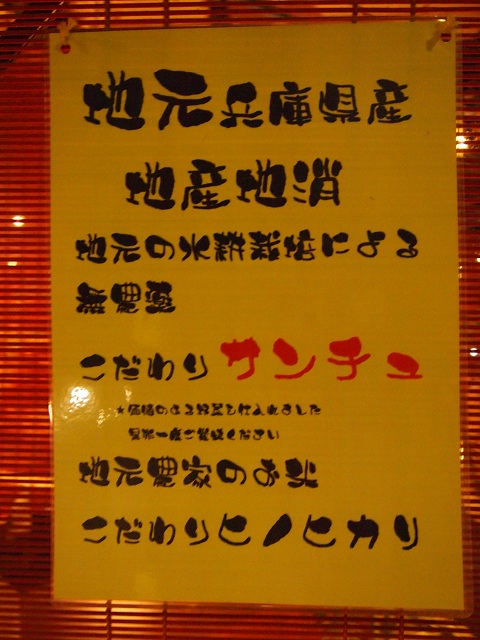 地元兵庫県産
地産地消
地元の水耕栽培による
無農薬
こだわりサンチュ
★評価のある野菜を仕入れました
是非一度ご賞味ください
地元農家のお米
こだわりヒノヒカリ